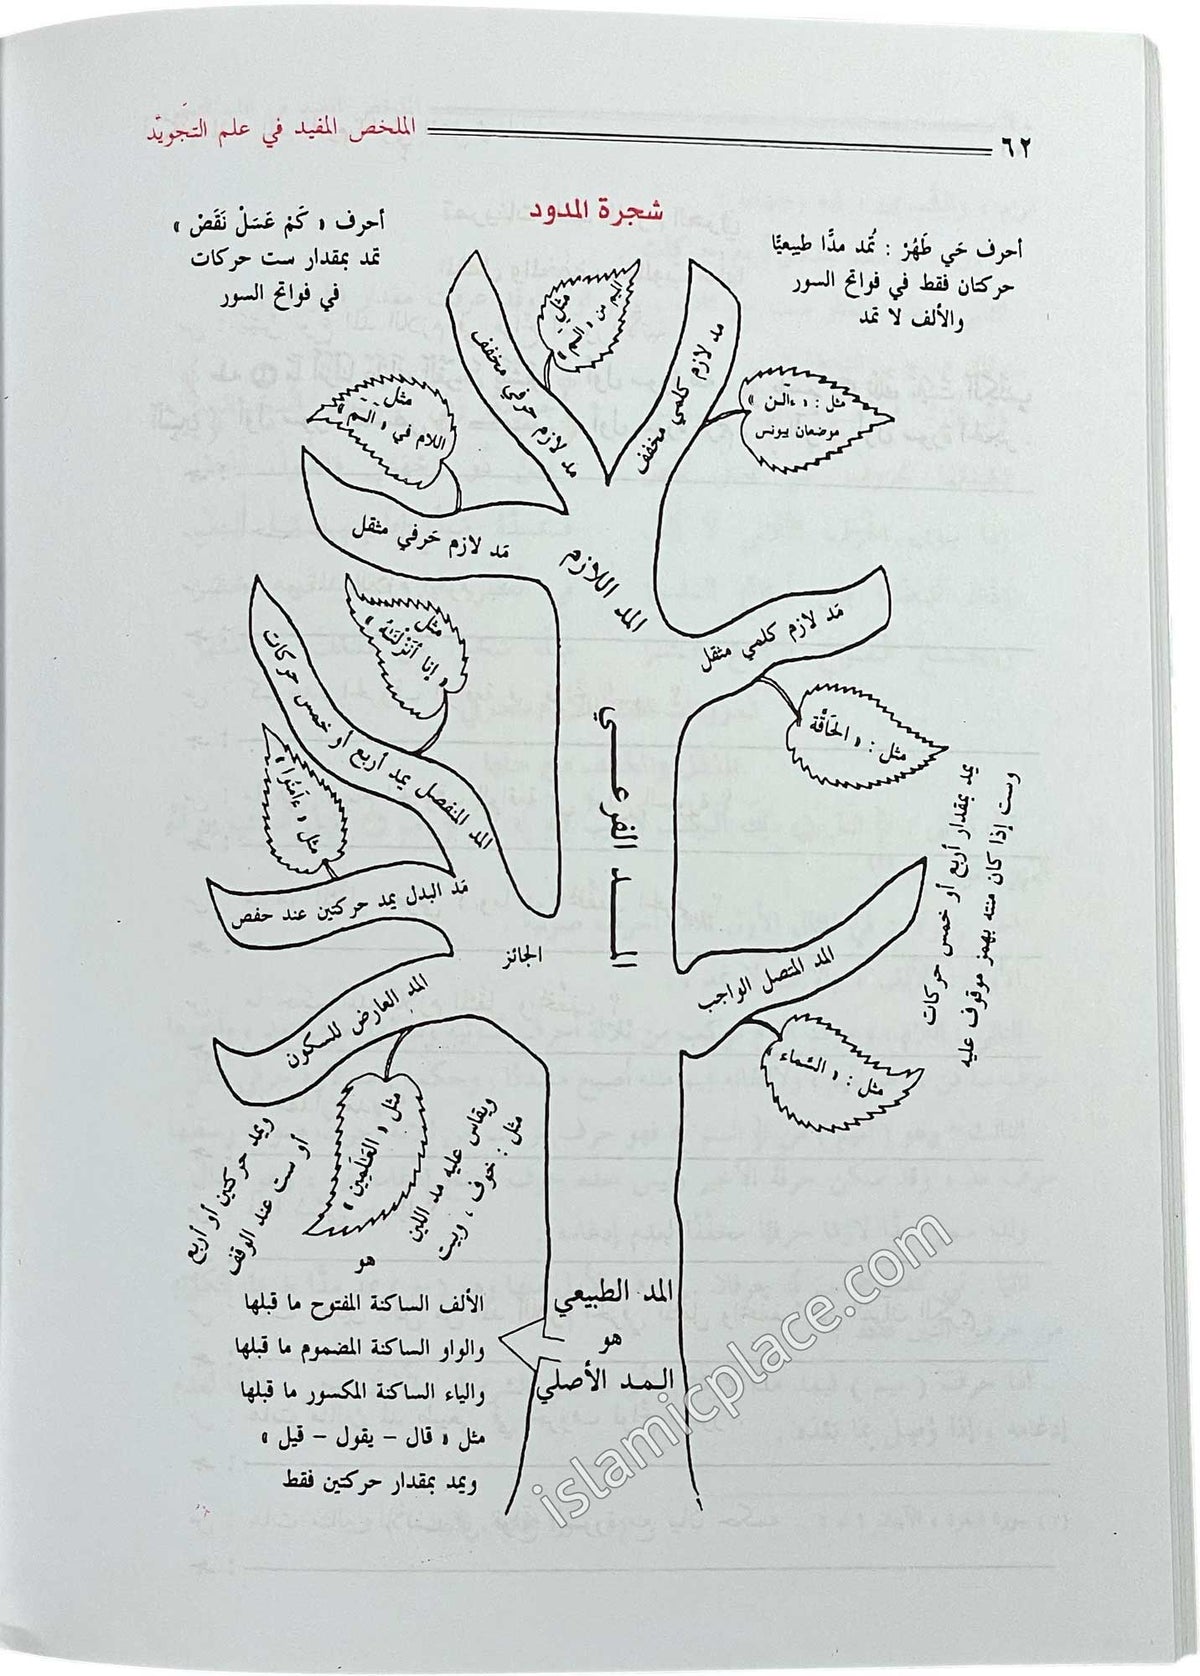 ٦٢
الملخص المفيد في علم التجويد
شجرة المدود
أحرف حَي طَهُرْ : تُمد مدًّا طبيعيًّا
حركتان فقط في فواتح السور
والألف لا تمد
أحرف « كَمْ عَسَلْ نَقَصْ »
تمد بمقدار ست حركات
في فواتح السور
مد لازم كلمي مخفف
مثل : « ءآلـٰن »
موضعان بيونس
مد لازم حرفي مخفف
مثل
الميم من « الـٓمٓ »
مد لازم حَرفي مثقل
مثل
اللام في « الـٓمٓ »
المد اللازم
مَد لازم كلمي مثقل
مثل : « الحَآقَّة
المـــد الفرعـــي
المد المنفصل يمد أربع أو خمس حركات
مثل
« إنآ أنزَلْنَـٰهُ »
مَد البدل يمد حركتين عند حفص
مثل « ءَامَنُوا »
الجائز
المد المتصل الواجب
مثل : « السَّماء »
يمد بمقدار أربع أو خمس حركات
وست إذا كان منته بهمز موقوف عليه
المد العارض للسكون
مثل
« العَـٰلَمِين »
ويمد حركتين أو أربع
أو ست عند الوقف
ويقاس عليه مد اللين
مثل : خوف ، وبيت
المد الطبيعي
هو
المـد الأصلي
هو
الألف الساكنة المفتوح ما قبلها
والواو الساكنة المضموم ما قبلها
والياء الساكنة المكسور ما قبلها
مثل « قال – يقول – قيل »
ويمد بمقدار حركتين فقط
islamicplace.com